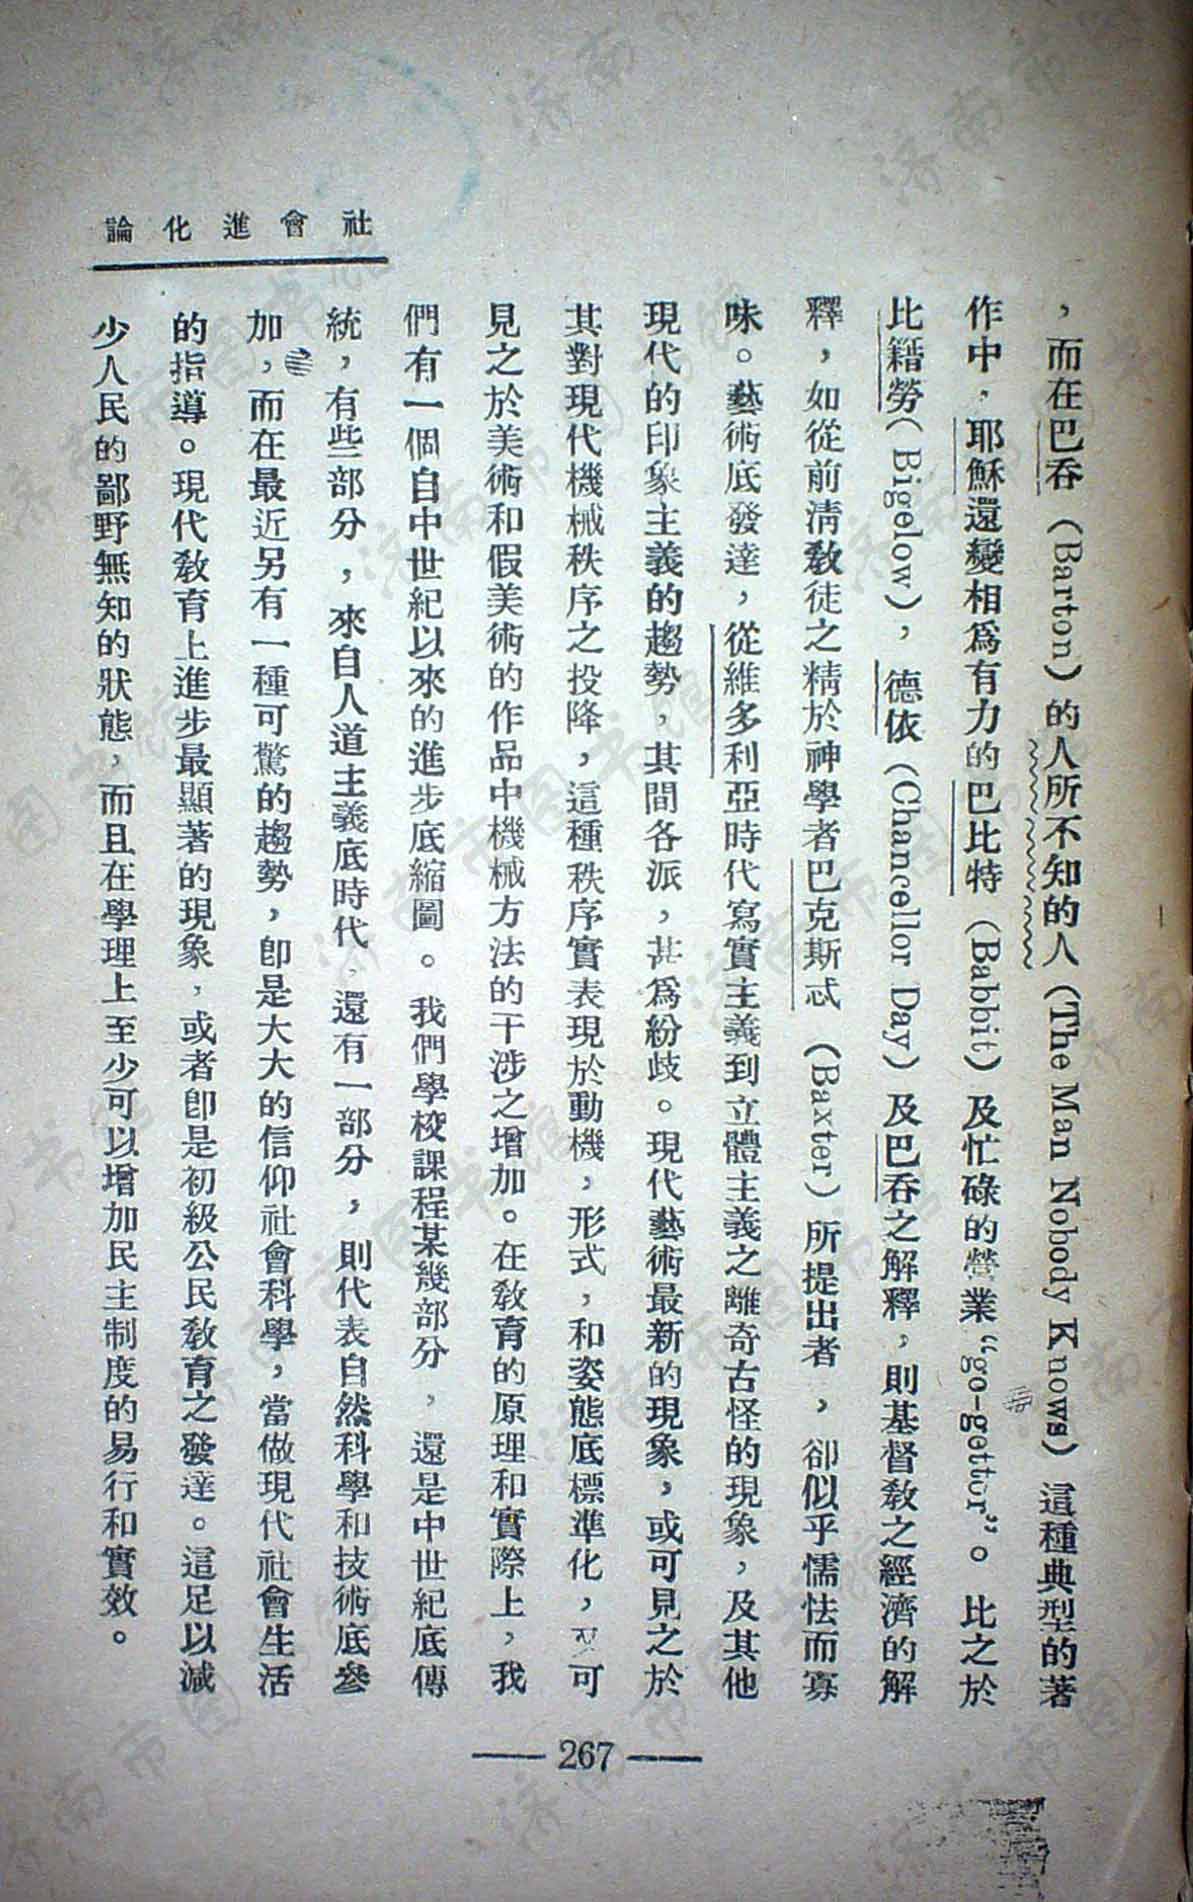 社會進化論
，而在巴吞（Barton）的人所不知的人（The Man Nobody Knows）這種典型的著
作中，耶穌還變相爲有力的巴比特（Babbit）及忙碌的營業“go-gettor”。比之於
比籍勞（Bigelow），德依（Chancellor Day）及巴吞之解釋，則基督教之經濟的解
釋，如從前淸教徒之精於神學者巴克斯忒（Baxter）所提出者，卻似乎懦怯而寡
味。藝術底發達，從維多利亞時代寫實主義到立體主義之離奇古怪的現象，及其他
現代的印象主義的趨勢，其間各派，甚爲紛歧。現代藝術最新的現象，或可見之於
其對現代機械秩序之投降，這種秩序實表現於動機，形式，和姿態底標準化，又可
見之於美術和假美術的作品中機械方法的干涉之增加。在敎育的原理和實際上，我
們有一個自中世紀以來的進步底縮圖。我們學校課程某幾部分，還是中世紀底傳
統，有些部分，來自人道主義底時代，還有一部分，則代表自然科學和技術底參
加，而在最近另有一種可驚的趨勢，卽是大大的信仰社會科學，當做現代社會生活
的指導。現代敎育上進步最顯著的現象，或者卽是初級公民敎育之發達。這足以減
少人民的鄙野無知的狀態，而且在學理上至少可以增加民主制度的易行和實效。
— 267 —
济南市图书馆